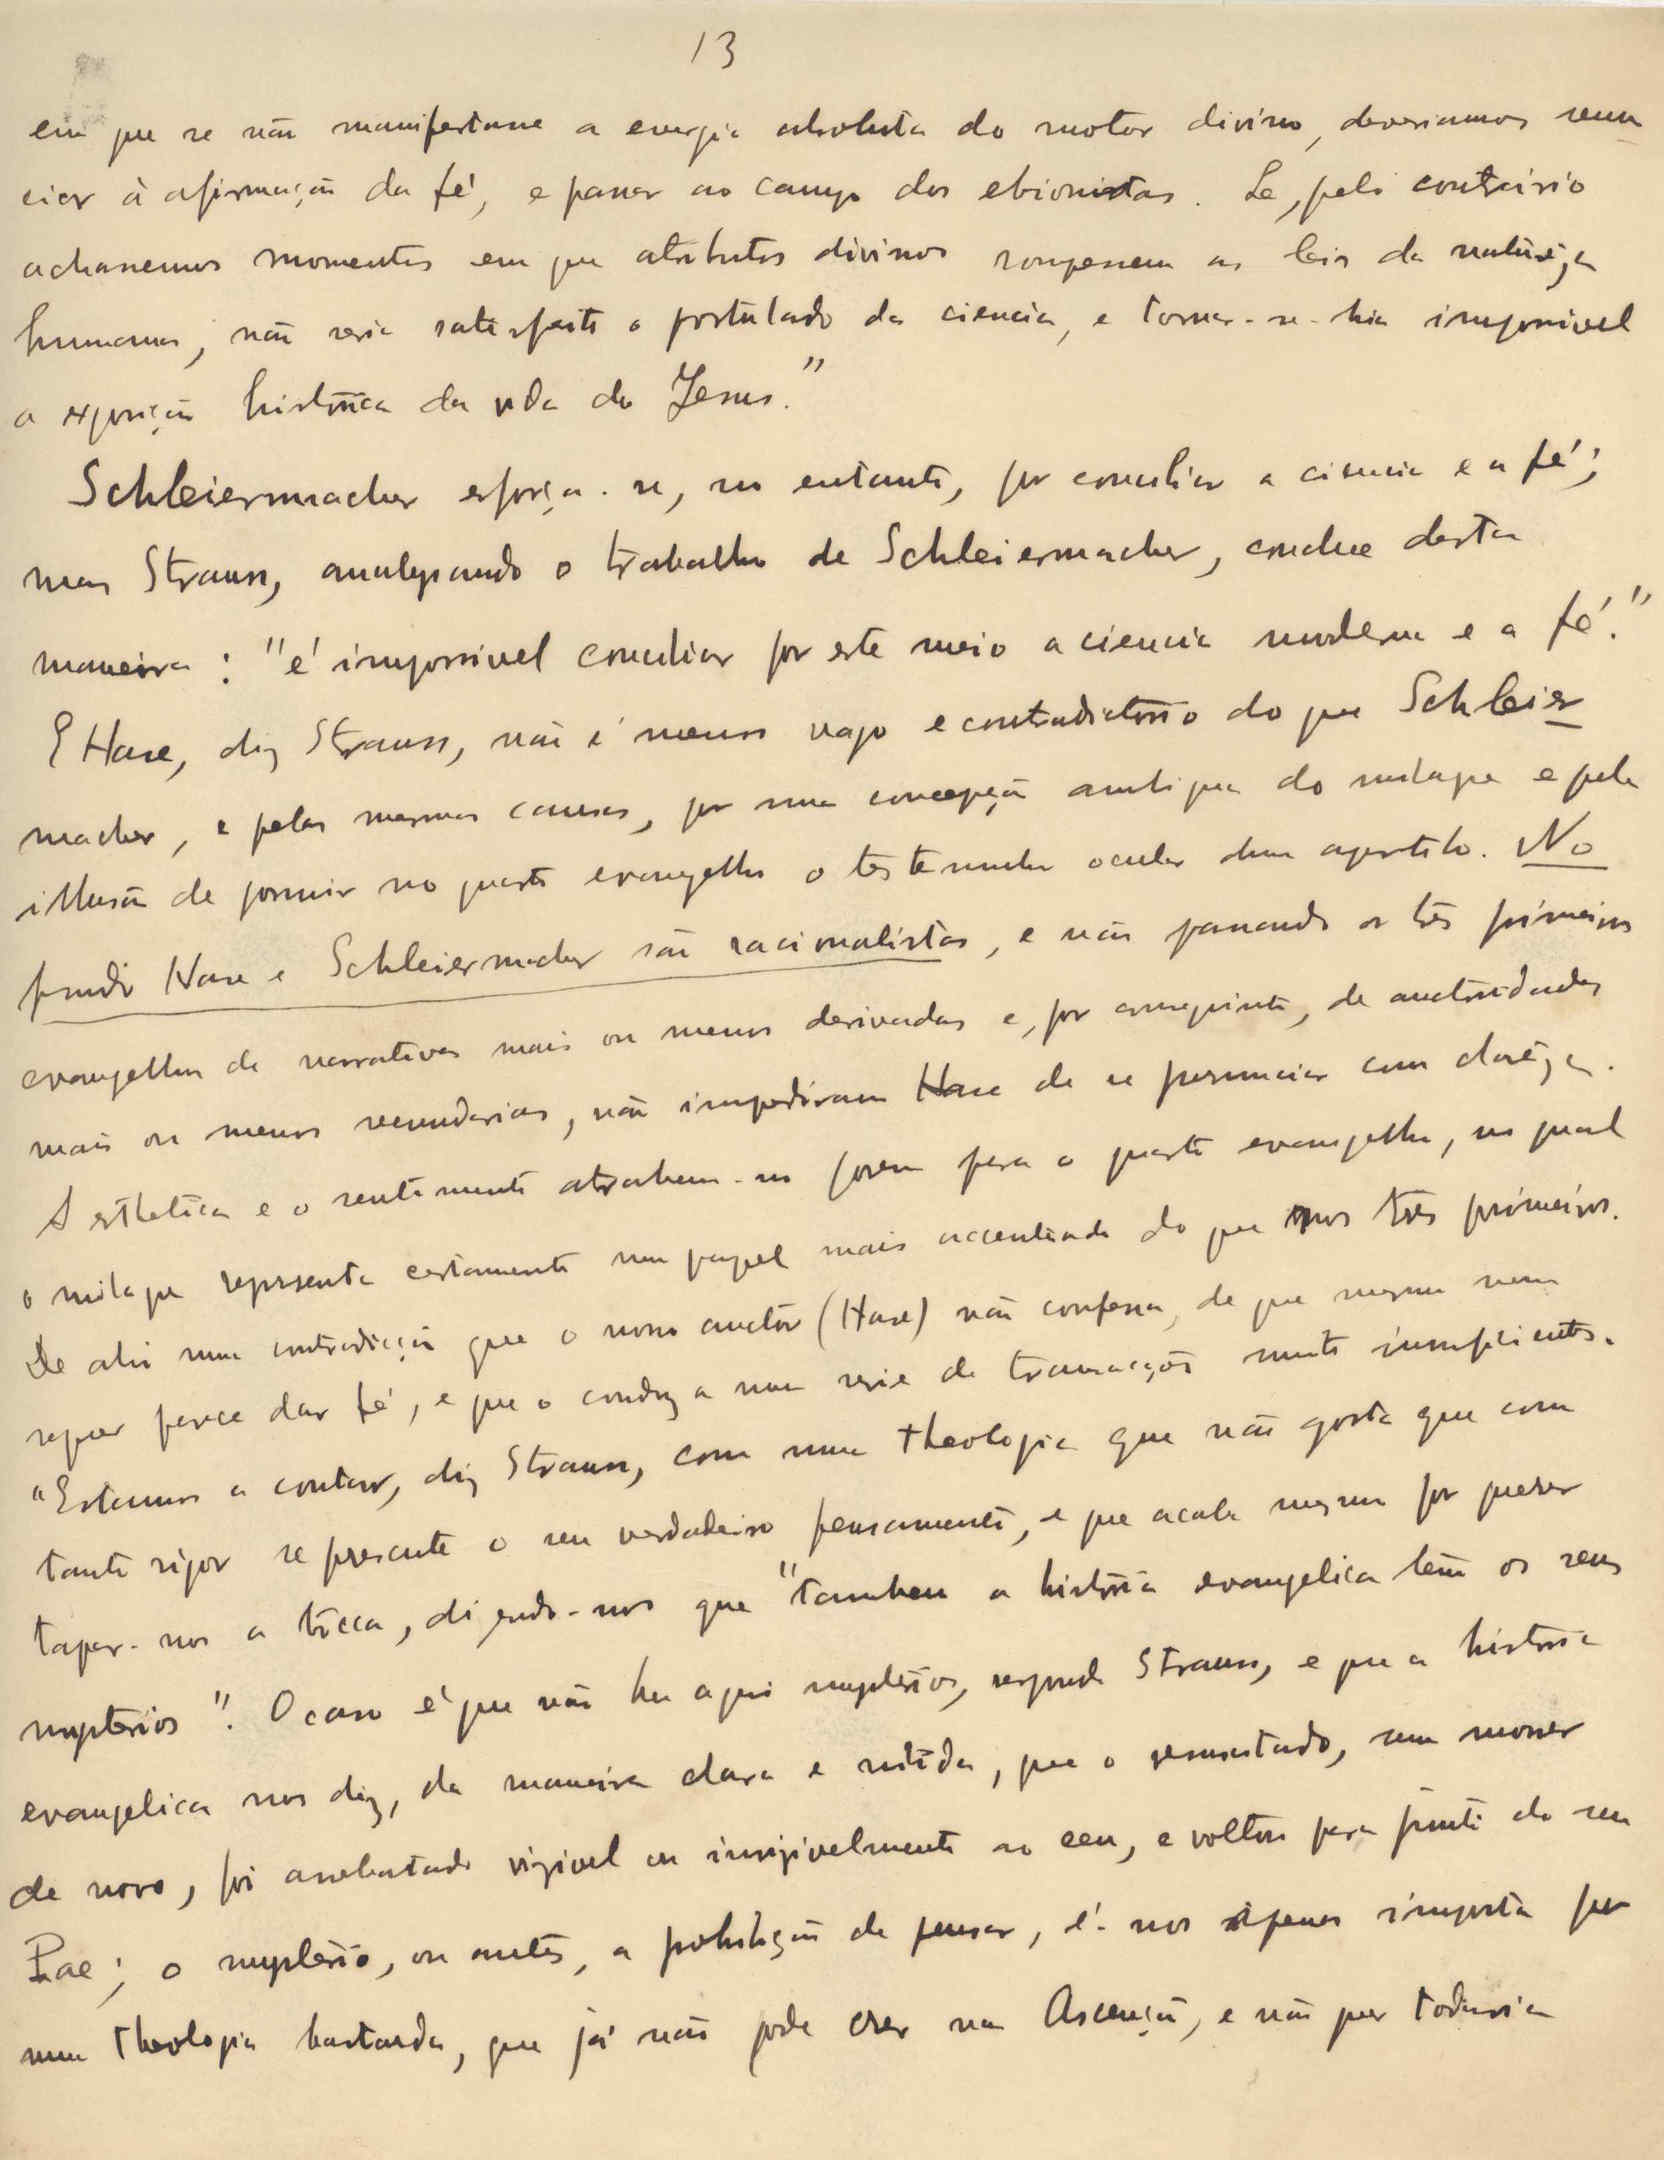 13
em que se não manifestasse a energia absoluta do motor divino, deveriamos renun
ciar á afirmação da fé, e passar ao campo dos ebionistas. Se, pelo contrário
achassemos momentos em que atributos divinos rompessem as leis da natureza
humana, não seria satisfeito o postulado da ciencia, e tornar-se-hia impossivel
a exposição histórica da vida de Jesus."
Schleiermacher esforça-se, no entanto, por conciliar a ciencia e a fé;
mas Strauss, analysando o trabalho de Schleiermacher, conclue desta
maneira: "é impossivel conciliar por este meio a ciencia moderna e a fé."
E Hase, diz Strauss, não é menos vago e contradictorio do que Schleier
macher, e pelas mesmas causas, por uma concepção ambigua do milagre e pela
illusão de possuir no quarto evangelho o testemunho ocular dum apostolo. No
fundo Hase e Schleiermacher são racionalistas, e não passando os três primeiros
evangelhos de narrativas mais ou menos derivadas e, por conseguinte, de auctoridades
mais ou menos secundarias, não impediram Hase de se pronunciar com clareza.
A esthetica e o sentimento attrahem-no porem para o quarto evangelho, no qual
o milagre representa certamente um papel mais accentuado do que nos três primeiros.
De ahi uma contradicção que o nosso auctor (Hase) não confessa, de que mesmo nem
sequer parece dar fé, e que o conduz a uma serie de transacções muito insuficientes.
"Estamos a contar, diz Strauss, com uma theologia que não gosta que com
tanto rigor se prescute o seu verdadeiro pensamento, e que acaba mesmo por querer
tapar-nos a bocca, dizendo-nos que "tambem a história evangelica tem os seus
mysterios". O caso é que não ha aqui mysterios, responde Strauss, e que a história
evangelica nos diz, da maneira clara e nitida, que o resuscitado, sem morrer
de novo, foi arrebatado visivel ou invisivelmente ao ceu, e voltou para junto do seu
Pae; o mysterio, ou antes, a prohibição de pensar, é-nos apenas imposta por
uma theologia bastarda, que já não pode crer na Ascenção, e não quer todavia